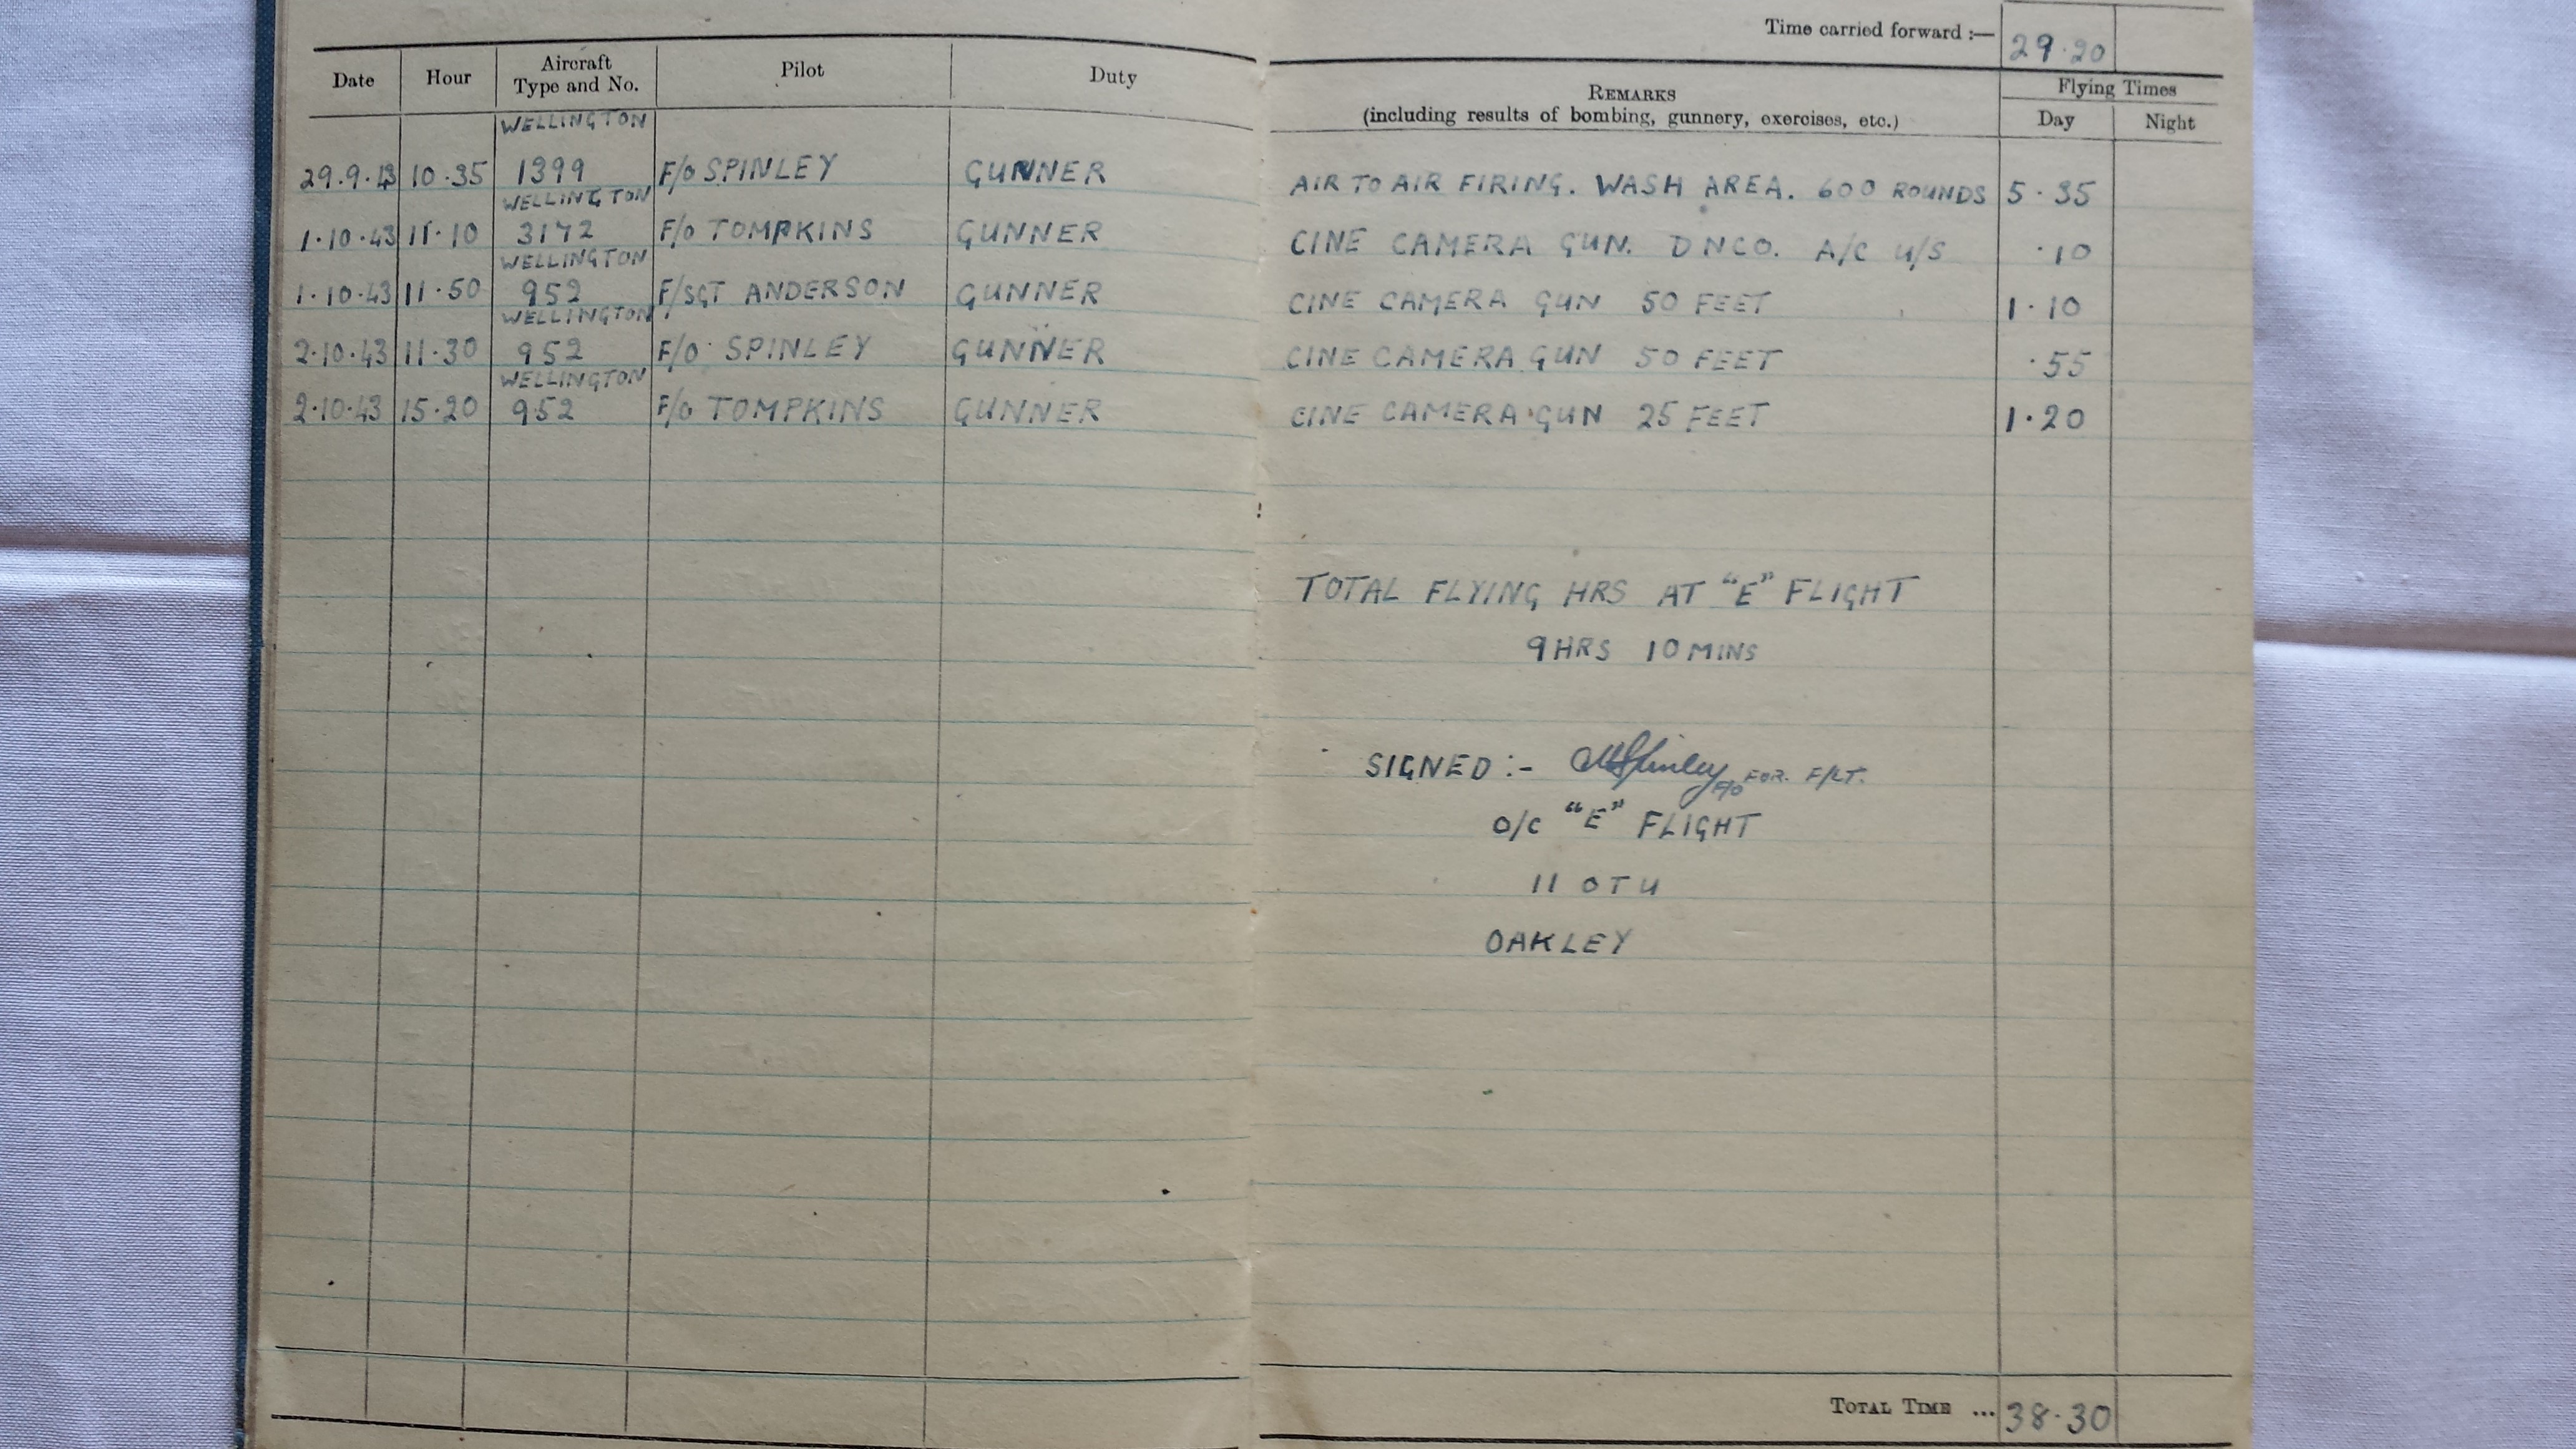 Time carried forward :— 29·20
Date Hour Aircraft Type and No. Pilot Duty REMARKS (including results of bombing, gunnery, exercises, etc.) Flying Times Day Night
WELLINGTON
29.9.43 10·35 1399 F/O SPINLEY GUNNER AIR TO AIR FIRING. WASH AREA. 600 ROUNDS 5·35
WELLINGTON
1·10·43 11·10 3172 F/O TOMPKINS GUNNER CINE CAMERA GUN. DNCO. A/C U/S ·10
WELLINGTON
1·10·43 11·50 952 F/SGT ANDERSON GUNNER CINE CAMERA GUN 50 FEET 1·10
WELLINGTON
2·10·43 11·30 952 F/O SPINLEY GUNNER CINE CAMERA GUN 50 FEET ·55
WELLINGTON
2·10·43 15·20 952 F/O TOMPKINS GUNNER CINE CAMERA GUN 25 FEET 1·20
TOTAL FLYING HRS AT "E" FLIGHT
9 HRS 10 MINS
SIGNED :- Spinley F/O FOR. F/LT.
O/C "E" FLIGHT
11 OTU
OAKLEY
TOTAL TIME ... 38·30